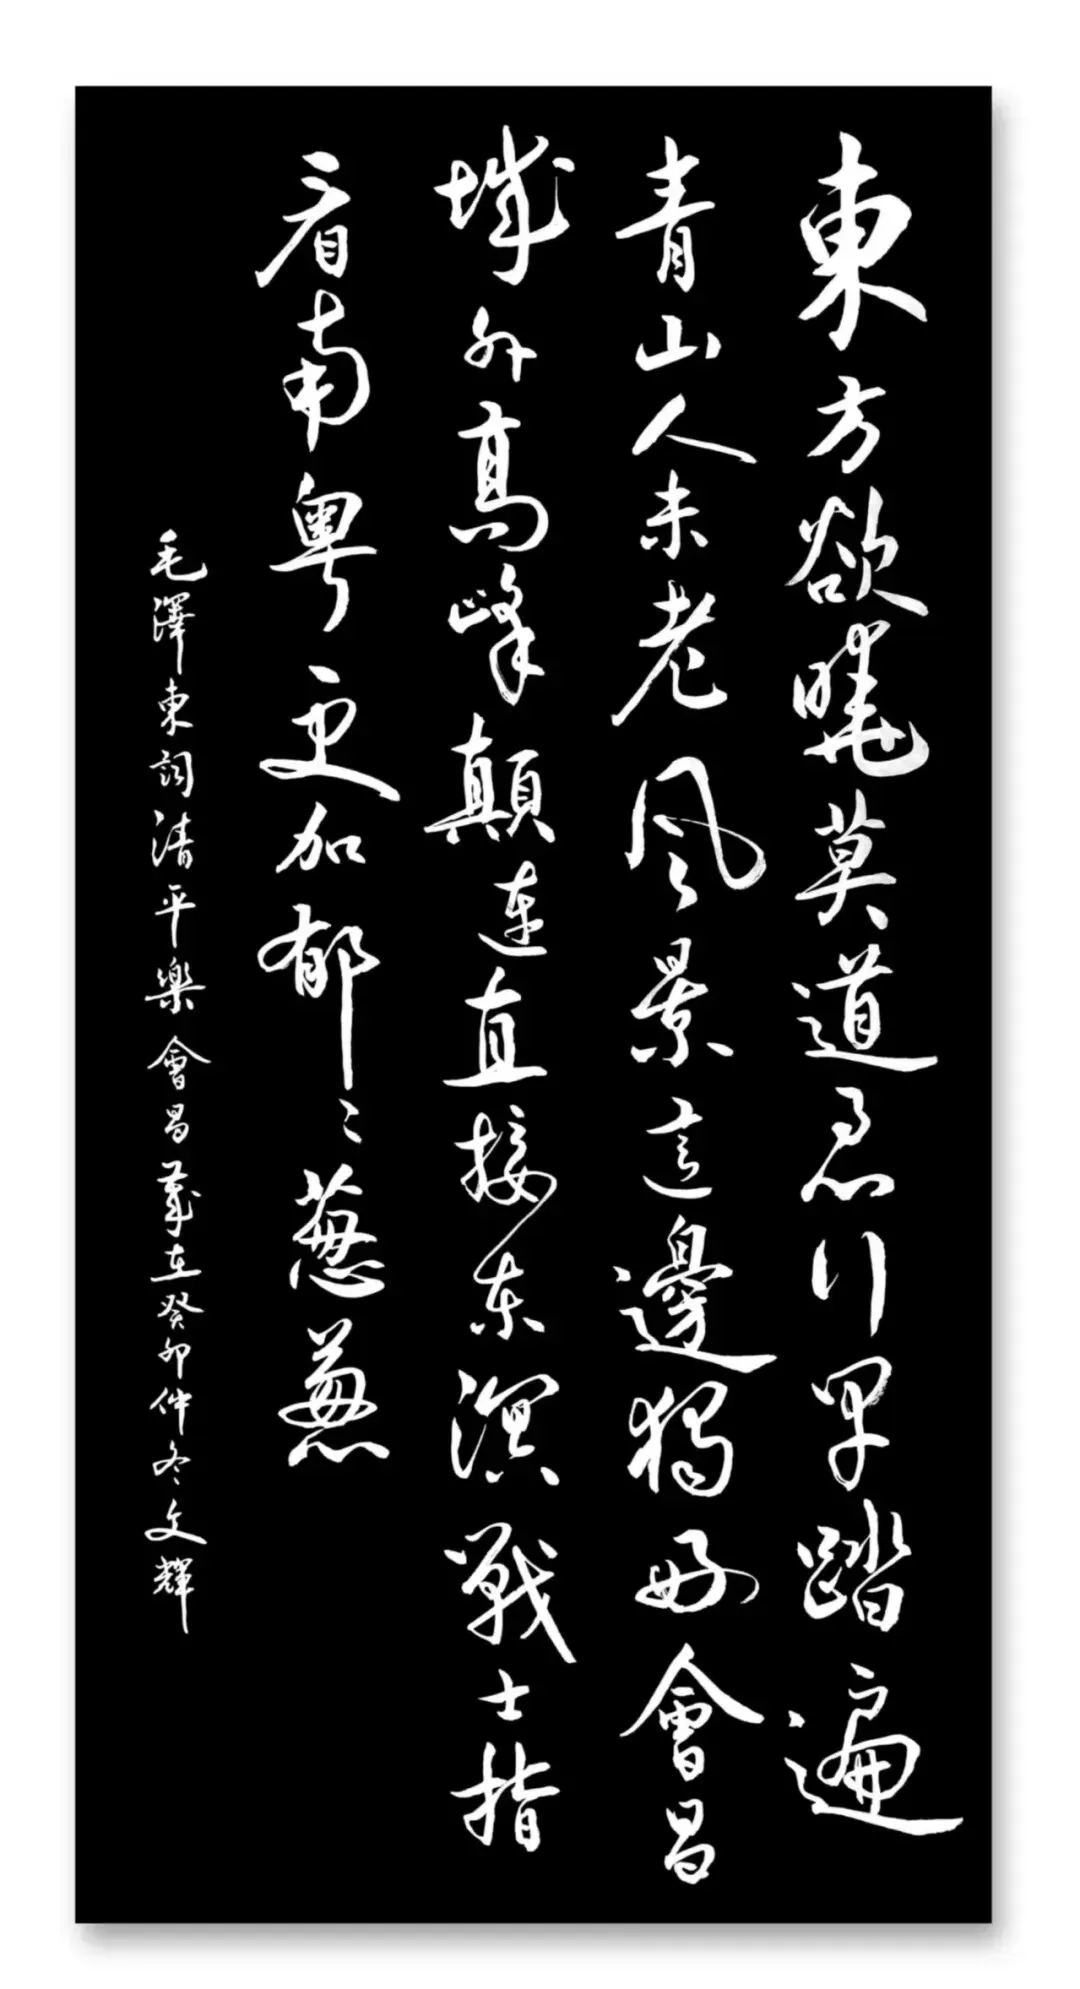 東方欲曉莫道君行早踏遍
青山人未老风景這邊獨好會昌
城外高峰顛連直接东溟戰士指
看南粵更加郁〻蔥蔥
毛澤東詞清平樂會昌歲在癸卯仲冬文輝